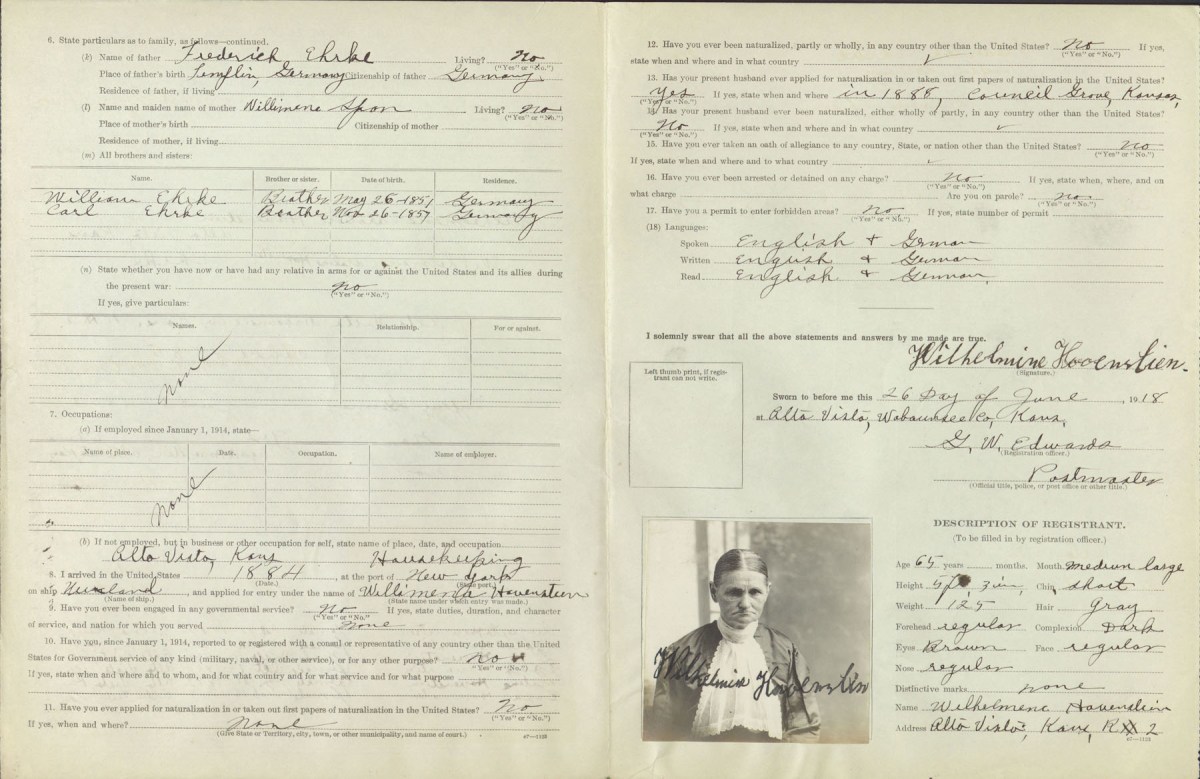 6. State particulars as to family, as follows—continued.
(k) Name of father Frederick Ehrke Living? No
("Yes" or "No.")
Place of father's birth Templin, Germany Citizenship of father Germany
Residence of father, if living
(l) Name and maiden name of mother Willimene Spon Living? No
("Yes" or "No.")
Place of mother's birth Citizenship of mother
Residence of mother, if living
(m) All brothers and sisters:
Name. Brother or sister. Date of birth. Residence.
William Ehrke Brother May 26-1851 Germany
Carl Ehrke Brother Nov 26-1857 Germany
(n) State whether you have now or have had any relative in arms for or against the United States and its allies during
the present war: no
("Yes" or "No.")
If yes, give particulars:
Names. Relationship. For or against.
none
7. Occupations:
(a) If employed since January 1, 1914, state—
Name of place. Date. Occupation. Name of employer.
none
(b) If not employed, but in business or other occupation for self, state name of place, date, and occupation
Alto Visto, Kans Housekeeping
8. I arrived in the United States 1884, at the port of New York
(Date.) (State port.)
on ship, and applied for entry under the name of Willimena Hovenstien
(Name of ship.) (State name under which entry was made.)
9. Have you ever been engaged in any governmental service? No If yes, state duties, duration, and character
("Yes" or "No.")
of service, and nation for which you served none
10. Have you, since January 1, 1914, reported to or registered with a consul or representative of any country other than the United
States for Government service of any kind (military, naval, or other service), or for any other purpose? no
("Yes" or "No.")
If yes, state when and where and to whom, and for what country and for what service and for what purpose
11. Have you ever applied for naturalization or taken out first papers of naturalization in the United States? No
("Yes" or "No.")
If yes, when and where? None
(Give State or Territory, city, town, or other municipality, and name of court.)
67—1132
12. Have you ever been naturalized, partly or wholly, in any country other than the United States? No If yes,
("Yes" or "No.")
state when and where and in what country
13. Has your present husband ever applied for naturalization in or taken out first papers of naturalization in the United States?
Yes If yes, state when and where in 1888, Council Grove, Kansas,
("Yes" or "No.")
14. Has your present husband ever been naturalized, either wholly or partly, in any country other than the United States?
No If yes, state when and where and in what country
("Yes" or "No.")
15. Have you ever taken an oath of allegiance to any country, State, or nation other than the United States? No
("Yes" or "No.")
If yes, state when and where and to what country
16. Have you ever been arrested or detained on any charge? No If yes, state when, where, and on
("Yes" or "No.")
what charge Are you on parole? no
("Yes" or "No.")
17. Have you a permit to enter forbidden areas? No If yes, state number of permit
("Yes" or "No.")
(18) Languages:
Spoken English + German
Written English & German
Read English + German,
I solemnly swear that all the above statements and answers by me made are true.
Wilhelmine Hovenstien.
(Signature.)
Left thumb print, if regis-
trant can not write.
Sworn to before me this 26 Day of June, 1918
at Alto Visto, Wabaunsee Co, Kans,
G. W. Edwards
(Registration officer.)
Postmaster
(Official title, police, or post office or other title.)
Wilhelmine Hovenstien
DESCRIPTION OF REGISTRANT.
(To be filled in by registration officer.)
Age 65 years months. Mouth medium large
Height 5 ft, 3 in, Chin short
Weight 125 Hair Gray
Forehead regular Complexion Dark
Eyes Brown Face regular
Nose regular
Distinctive marks none
Name Wilhelmene Hovenstien
Address Alto Visto, Kans, R 2
67—1132